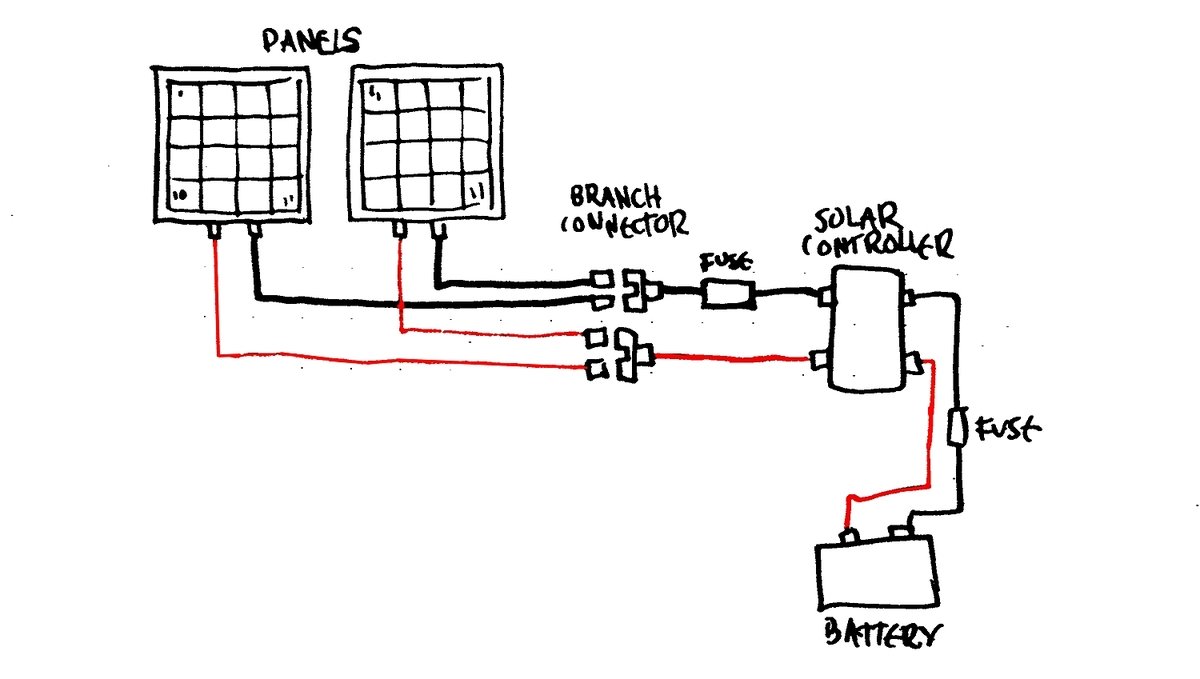 PANELS
BRANCH
CONNECTOR
FUSE
SOLAR
CONTROLLER
FUSE
BATTERY